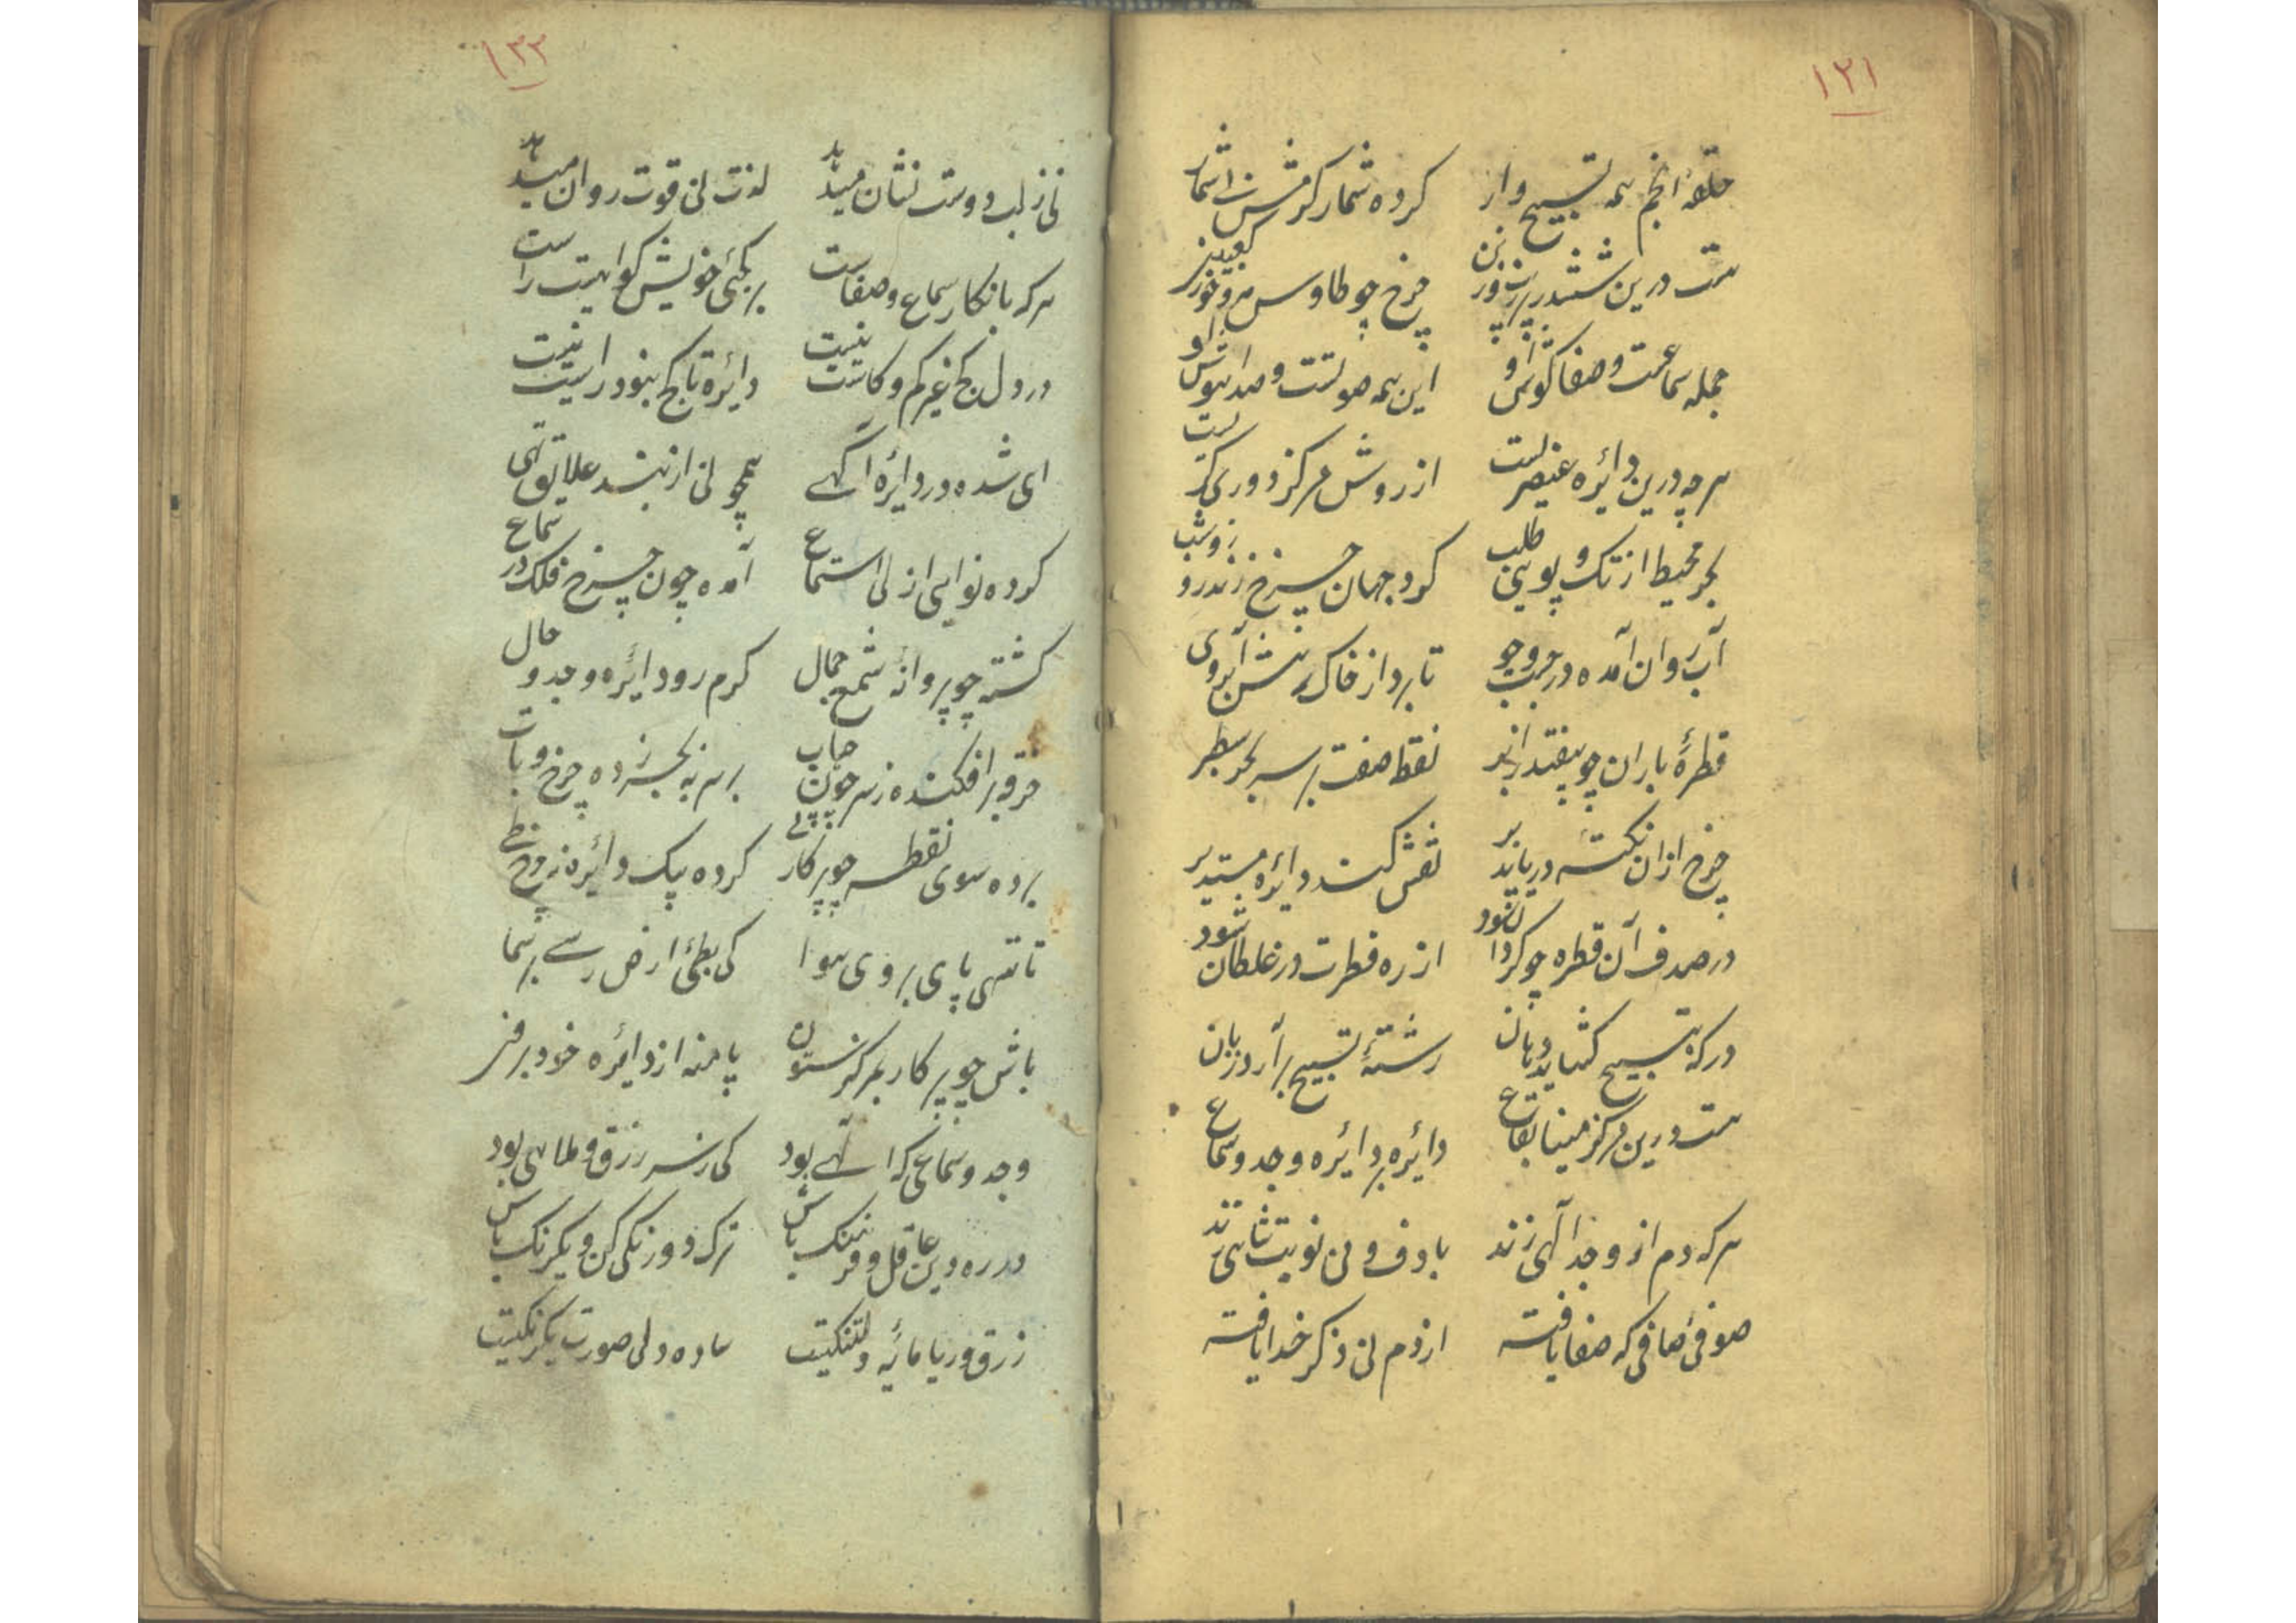 ۱۲۱
حلقهٔ انجم همه تسبیح وار کرده شمار کرمش
هست درین ششدر چرخ چو طاوس
جمله سماعست و صفا گوش او این همه صوتست و صدا
هر چه درین دایره عنصریست از روش مرکز دوری کریست
بحر محیط از تک و پوی طلب گرد جهان چرخ زند روز و شب
آب روان آمده در جست و جو تا برد از خاک رهش آبروی
قطرهٔ باران چو بیفتد ز ابر نقطه صفت بر سر بحر
چرخ ازان نکته دریا نقش کند دایرهٔ مستدیر
در صدف آن قطره چو گردان شود از ره فطرت در غلطان شود
در که تسبیح گشاید دهان رشتهٔ تسبیح برآرد زبان
هست درین مرکز مینا بقاع دایره بر دایره وجد و سماع
هر که دم از وجد الهی زند با دف و نی نوبت شاهی زند
صوفی صافی که صفا یافته از دم نی ذکر خدا یافته
۱۳۳
نی ز لب دوست نشان میدهد لذت نی قوت روان میدهد
هر که بانکار سماع و صفاست بر کجی خویش گواهیست راست
در دل کج غیر کم و کاست نیست دایره تا کج بنود راست نیست
ای شده در دایره آگهی همچو نی از بند علایق تهی
کرده نوایی از نی استماع آمده چون چرخ فلک در سماع
گشته چو پروانهٔ شمع جمال گرم رو دایره وجد و حال
خرقه برافکنده ز سر چون حباب بر سر بحر زده چرخ و تاب
برده سوی نقطه چو پرکار پی کرده یک دایره ز چرخ طی
تا ننهی پای بروی هوا کی بطی ارض رسی بر سما
باش چو پرکار بمرکز ستون پا منه از دایره خود برون
وجد و سماعی که الهی بود کی ز سر زرق و ملاهی بود
در ره دین عاقل و فرهنگ باش ترک دورنگی کن و یکرنگ باش
زرق و ریا مایهٔ دلتنگیست ساده دلی صورت یکرنگیست